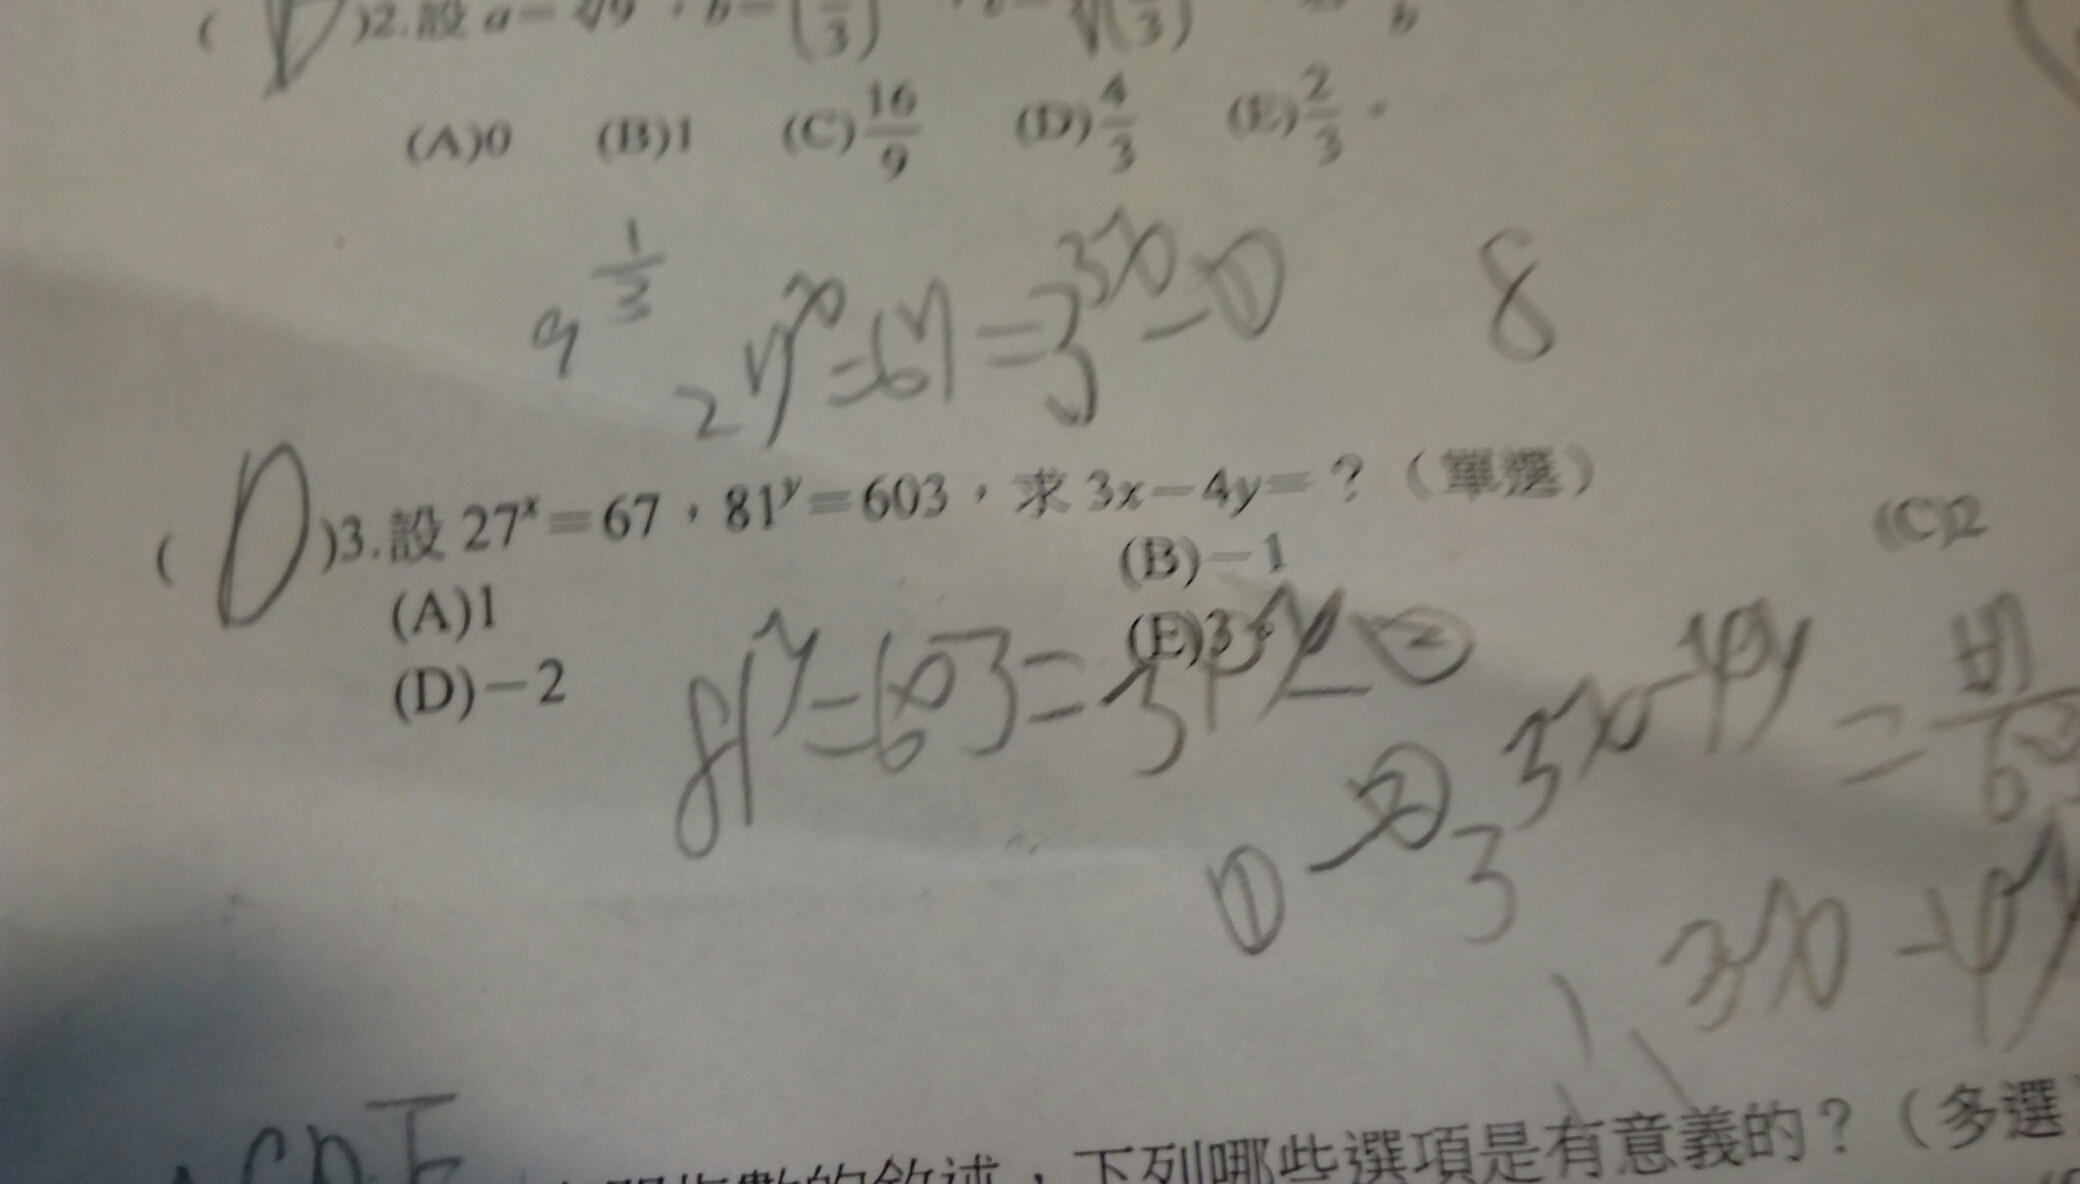 ( D )2.設 a=∛9，b=
(A)0 (B)1 (C)16/9 (D)4/3 (E)2/3。
9^(1/3) 27^x=67=3^(3x)-① 8
( D )3.設 27^x=67，81^y=603，求 3x-4y=？（單選）
(A)1 (B)-1 (C)2
(D)-2 (E)3。
81^y=603=3^(4y)-②
①-② 3^(3x-4y) =
3
3x-4y
下列哪些選項是有意義的？（多選